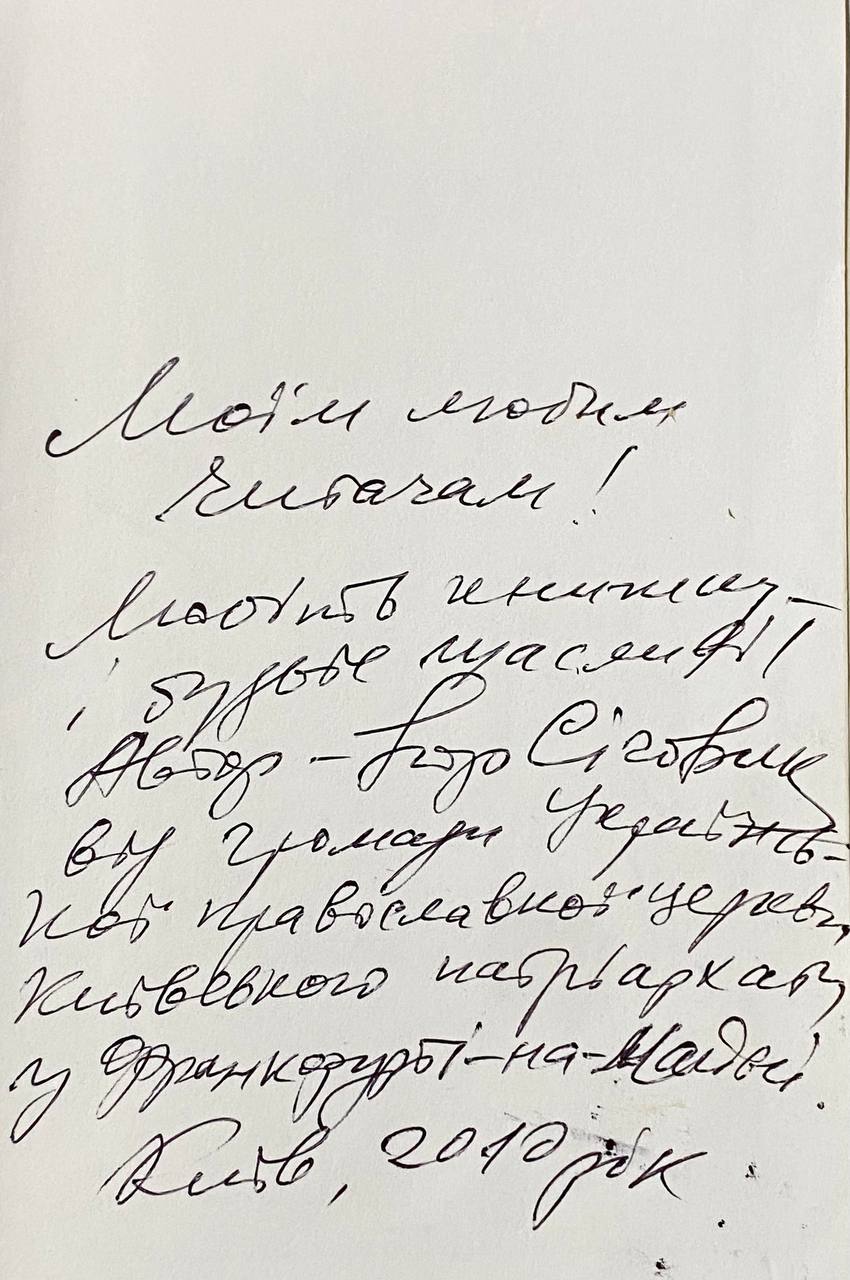 Моїм любим
читачам!
Любіть книжку –
і будьте щасливі!
Автор – Ігор Січовик
від громади Українсь-
кої православної церкви
Київського патріархату
у Франкфурті-на-Майні.
Київ, 2010 рік